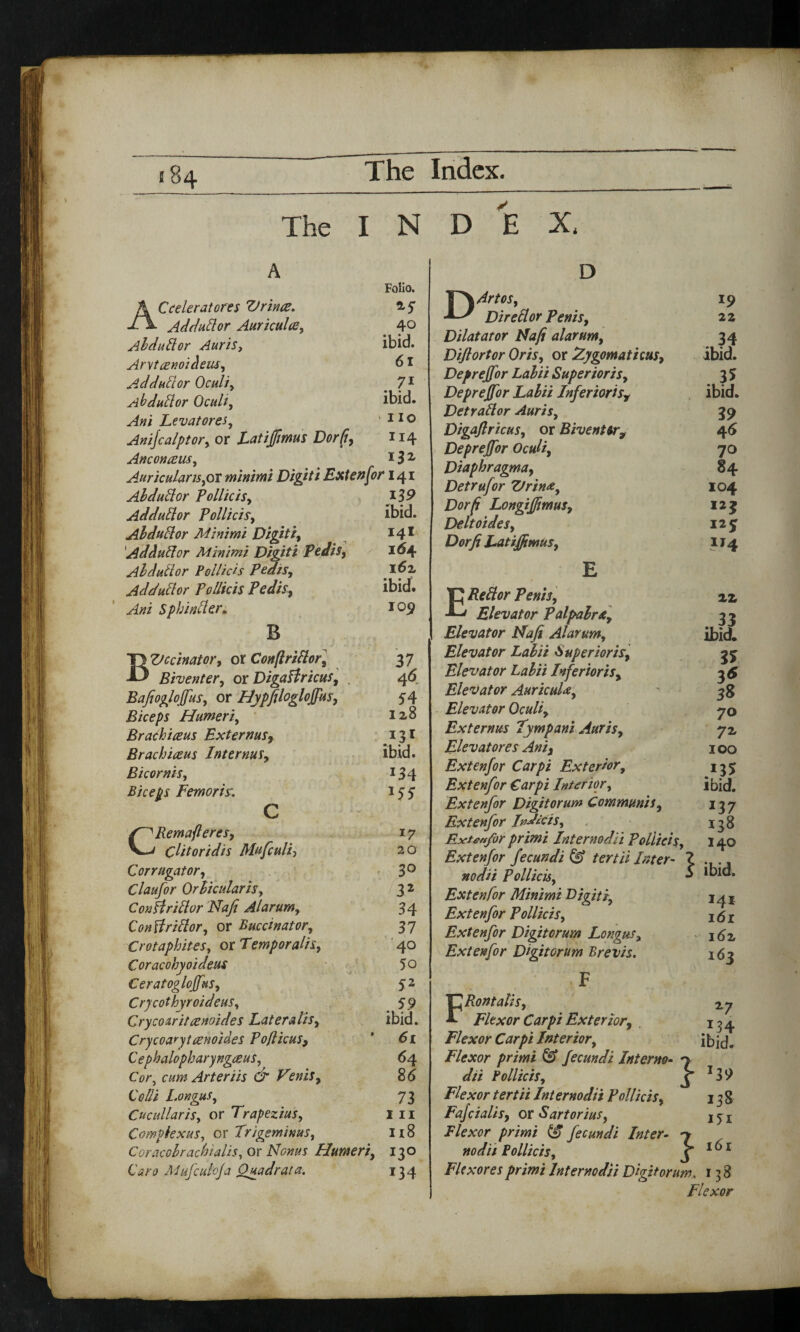 184 The Index.
The INDEX.
A
Folio.
ACceleratores Urinæ. 25
Adductor Auriculæ, 40
Abductor Auris, ibid.
Arytænoideus, 61
Adductor Oculi, 71
Abductor Oculi, ibid.
Ani Levatores, 110
Aniscalptor, or Latissimus Dorsi, 114
Anconæus, 132
Auricularis, or minimi Digiti Extensor 141
Abductor Pollicis, 139
Adductor Pollicis, ibid.
Abductor Minimi Digiti, 141
Adductor Minimi Digiti Pedis, 164
Abductor Pollicis Pedis, 162
Adductor Pollicis Pedis, ibid.
Ani Sphincter. 109
B
BUccinator, or Constrictor, 37
Biventer, or Digastricus, 46
Basioglossus, or Hypsiloglossus, 54
Biceps Humeri, 128
Brachiæus Externus, 131
Brachiæus Internus, ibid.
Bicornis, 134
Biceps Femoris. 155
C
CRemasteres, 17
Clitoridis Musculi, 20
Corrugator, 30
Clausor Orbicularis, 32
Constrictor Nasi Alarum, 34
Constrictor, or Buccinator, 37
Crotaphites, or Temporalis, 40
Coracohyoideus 50
Ceratoglossus, 52
Crycothyroideus, 59
Crycoaritænoides Lateralis, ibid.
Crycoarytænoides Posticus, 61
Cephalopharyngæus, 64
Cor, cum Arteriis & Venis, 86
Colli Longus, 73
Cucullaris, or Trapezius, 111
Complexus, or Trigeminus, 118
Coracobrachialis, or Nonus Humeri, 130
Caro Musculosa Quadrata. 134
D
DArtos, 19
Director Penis, 22
Dilatator Nasi alarum, 34
Distortor Oris, or Zygomaticus, ibid.
Depressor Labii Superioris, 35
Depressor Labii Inferioris, ibid.
Detractor Auris, 39
Digastricus, or Biventer, 46
Depressor Oculi, 70
Diaphragma, 84
Detrusor Urinæ, 104
Dorsi Longissimus, 123
Deltoides, 125
Dorsi Latissimus, 114
E
ERector Penis, 22
Elevator Palpabræ, 33
Elevator Nasi Alarum, ibid.
Elevator Labii Superioris, 35
Elevator Labii Inferioris, 36
Elevator Auriculæ, 38
Elevator Oculi, 70
Externus Tympani Auris, 72
Elevatores Ani, 100
Extensor Carpi Exterior, 135
Extensor Carpi Interior, ibid.
Extensor Digitorum Communis, 137
Extensor Indicis, 138
Extensor primi Internodii Pollicis, 140
Extensor secundi & tertii Inter-
nodii Pollicis, } ibid.
Extensor Minimi Digiti, 141
Extensor Pollicis, 161
Extensor Digitorum Longus, 162
Extensor Digitorum Brevis. 163
F
FRontalis, 27
Flexor Carpi Exterior, 134
Flexor Carpi Interior, ibid.
Flexor primi & secundi Interno-
dii Pollicis, } 139
Flexor tertii Internodii Pollicis, 138
Fascialis, or Sartorius, 151
Flexor primi & secundi Inter-
nodii Pollicis, } 161
Flexores primi Internodii Digitorum. 138
Flexor